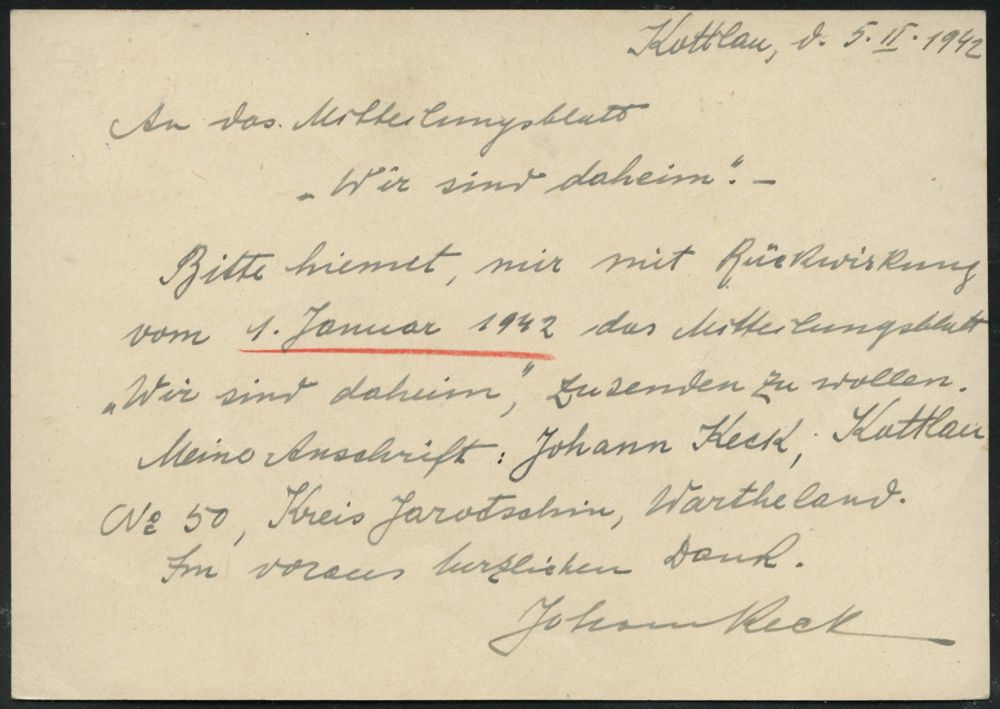 Kottlau, d. 5. II. 1942
An das Mitteilungsblatt
„Wir sind daheim“. –
Bitte hiemet, mir mit Rückwirkung
vom 1. Januar 1942 das Mitteilungsblatt
„Wir sind daheim“, zusenden zu wollen.
Meine Anschrift: Johann Keck, Kottlau
No 50, Kreis Jarotschin, Wartheland.
Im voraus herzlichen Dank.
Johann Keck